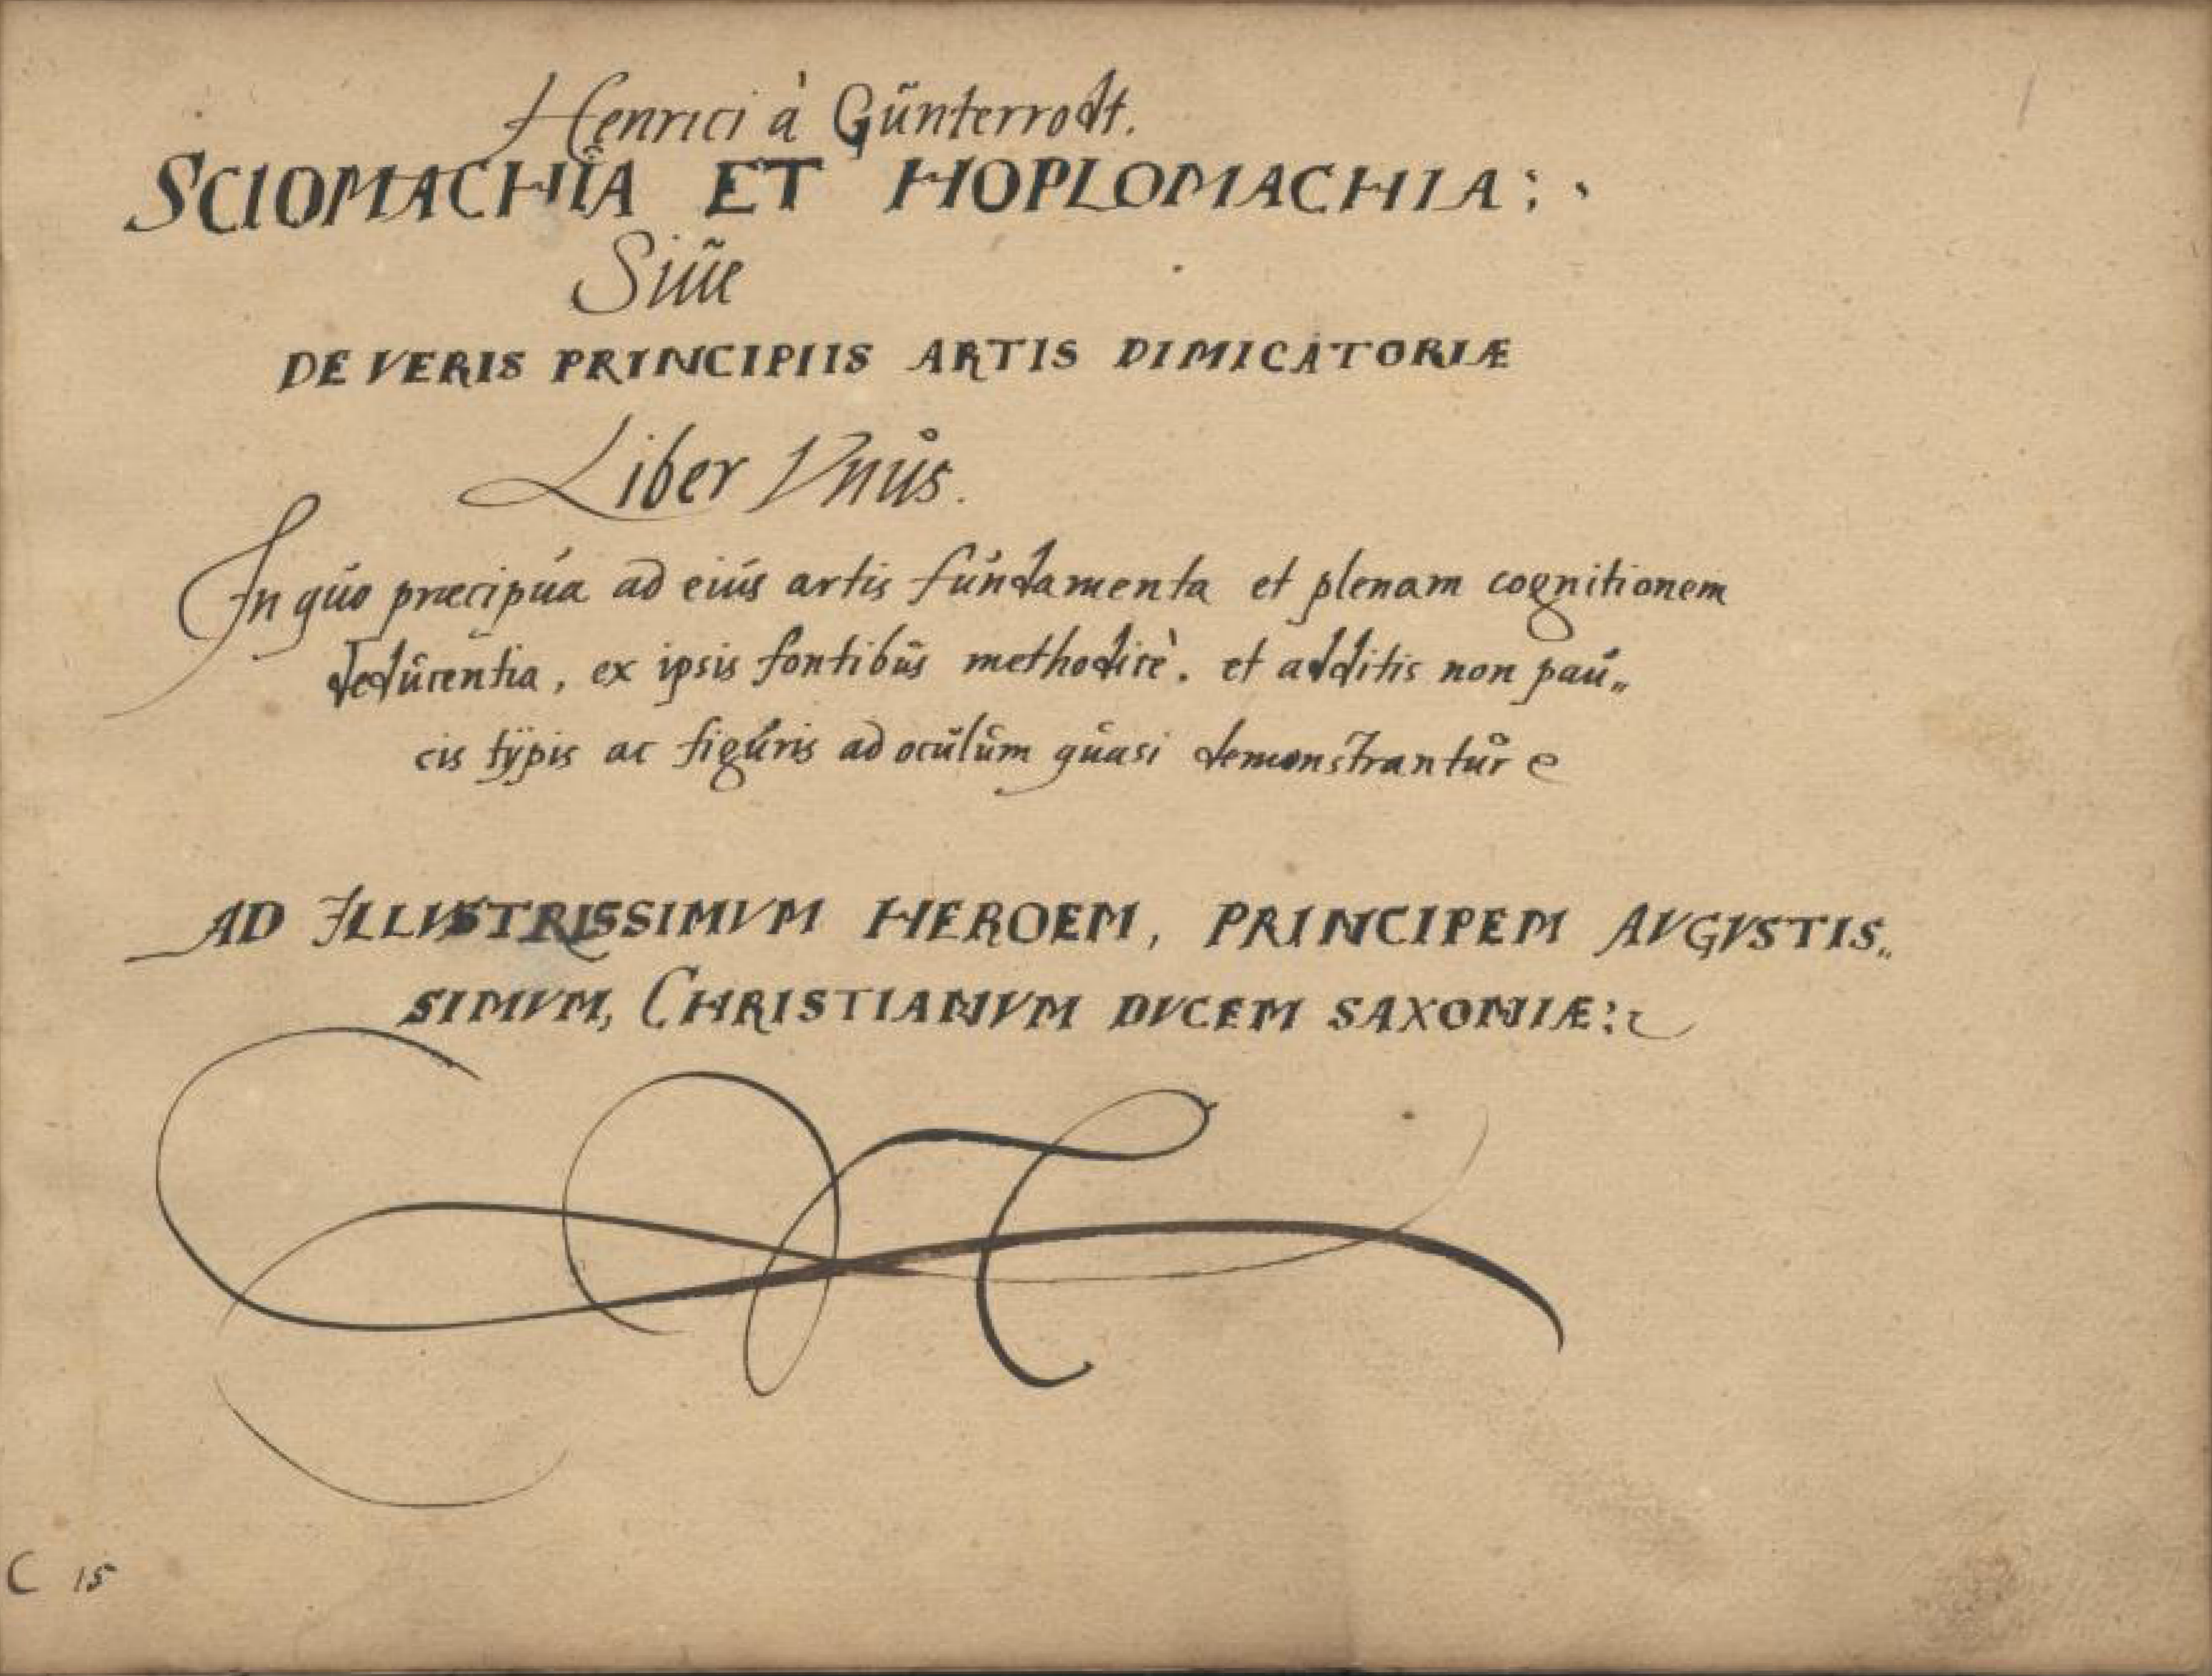 Henrici à Günterrodt.
SCIOMACHIA ET HOPLOMACHIA:
Siũe
DE VERIS PRINCIPIIS ARTIS DIMICATORIÆ
Liber Vnůs.
In quo præcipúa ad eiús artis fúndamenta et plenam cognitionem
dedúcentia, ex ipsis fontibús methodicè. et additis non paú„
cis tÿpis ac figúris ad ocúlúm qúasi demonstrantůr
AD ILLVSTRISSIMVM HEROEM, PRINCIPEM AVGVSTIS„
SIMVM, CHRISTIANVM DVCEM SAXONIÆ:
C 15